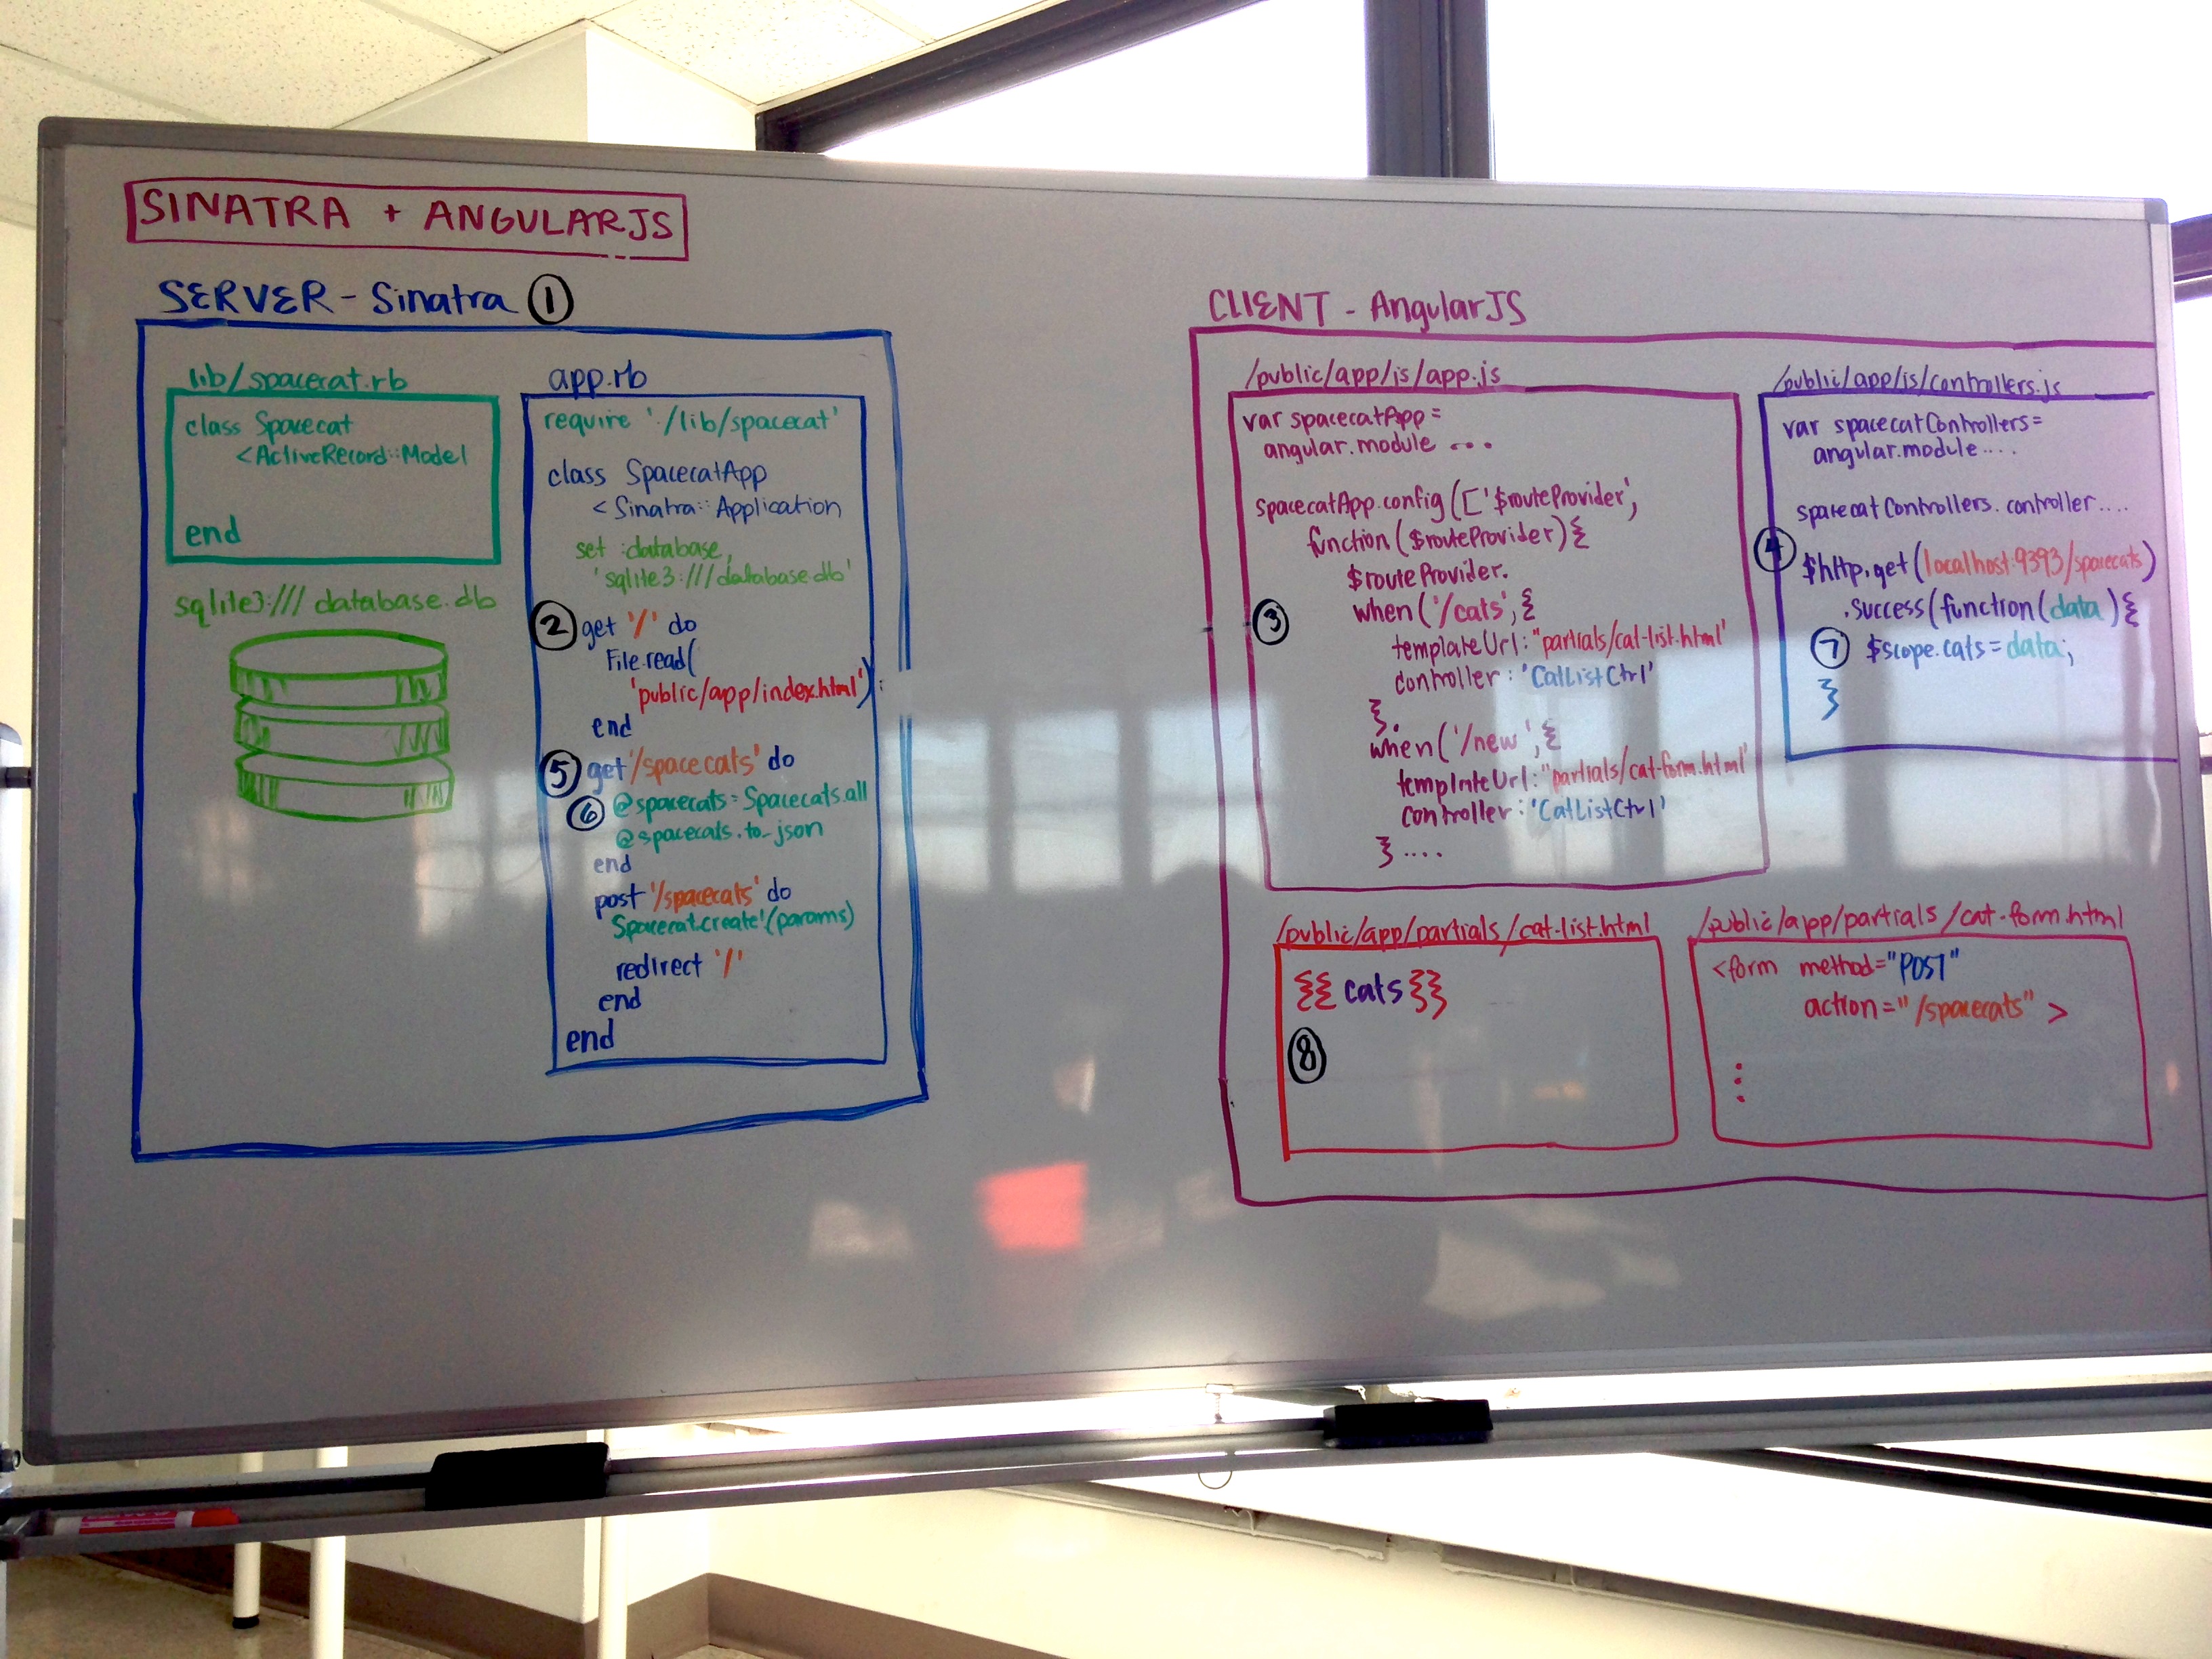 SINATRA + ANGULARJS
SERVER - Sinatra ①
lib/spacecat.rb
class Spacecat
<ActiveRecord::Model
end
sqlite3:/// database.db
app.rb
require './lib/spacecat'
class SpacecatApp
< Sinatra::Application
set :database,
'sqlite3:///database.db'
② get '/' do
File.read(
'public/app/index.html')
end
⑤ get '/spacecats' do
⑥ @spacecats = Spacecats.all
@spacecats.to_json
end
post '/spacecats' do
Spacecat.create!(params)
redirect '/'
end
end
CLIENT - AngularJS
/public/app/js/app.js
var spacecatApp =
angular.module ...
spacecatApp.config(['$routeProvider',
function($routeProvider){
$routeProvider.
③ when('/cats',{
templateUrl: "partials/cat-list.html'
controller: 'CatListCtrl'
}.
when('/new',{
templateUrl: "partials/cat-form.html'
controller: 'CatListCtrl'
} ....
/public/app/js/controllers.js
var spacecatControllers =
angular.module....
spacecatControllers.controller....
④ $http.get(localhost:9393/spacecats)
.success(function(data){
⑦ $scope.cats = data;
}
/public/app/partials/cat-list.html
{{cats}}
⑧
/public/app/partials/cat-form.html
<form method="POST"
action="/spacecats" >
⋮